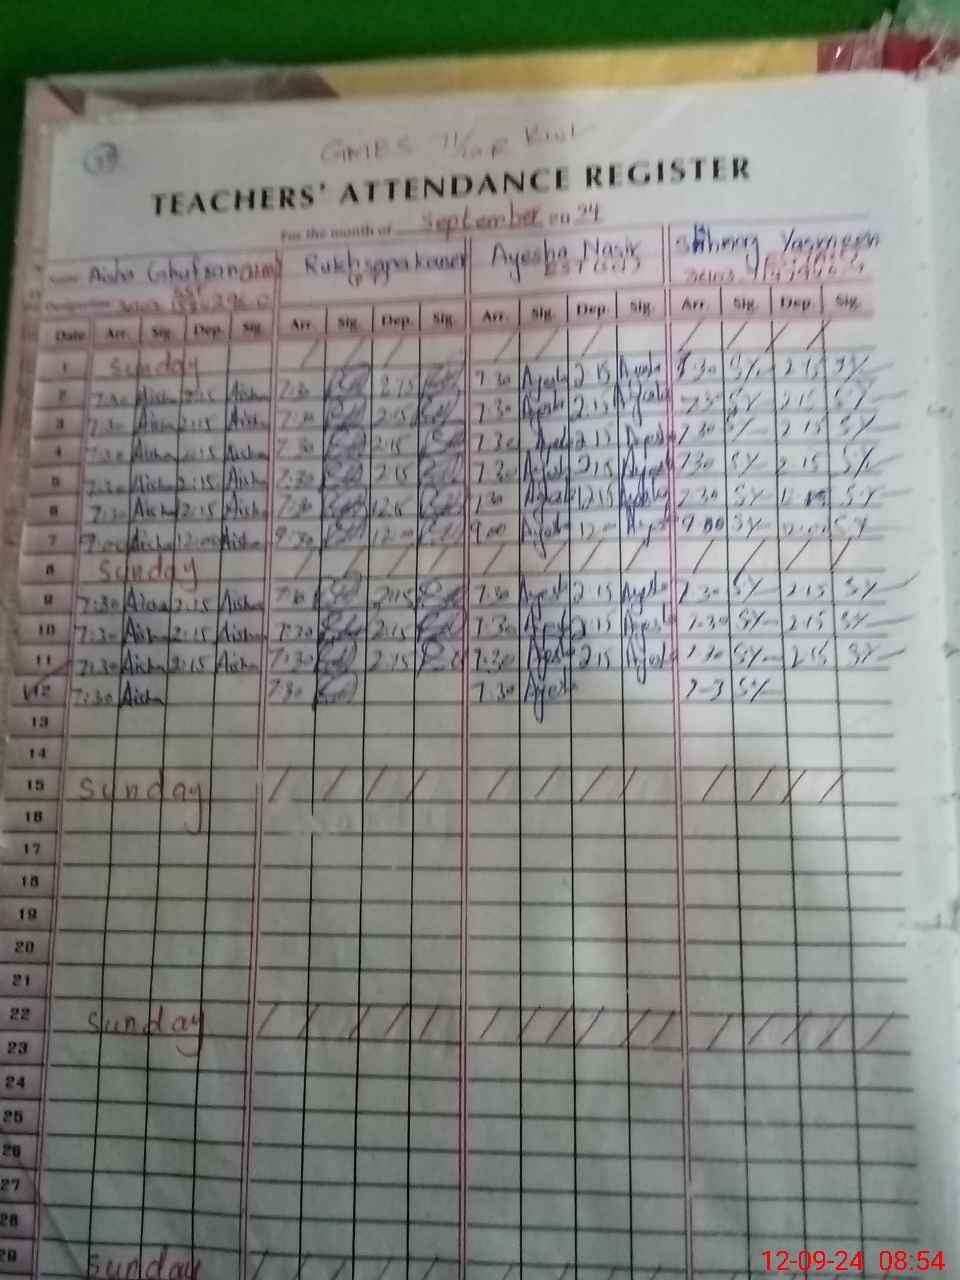 GMES 71/10R KWL
TEACHERS' ATTENDANCE REGISTER
For the month of September 2024
Name Aisha Ghufran Rukhsana kauser Ayesha Nasir Yasmeen
Designation SST EST
Date Arr. Sig. Dep. Sig. Arr. Sig. Dep. Sig. Arr. Sig. Dep. Sig. Arr. Sig. Dep. Sig.
1 Sunday
2 7:30 Aisha 2:15 Aisha 7:30 2:15 7:30 Ayesha 2:15 Ayesha 7:30 SY 2:15 SY
3 7:30 Aisha 2:15 Aisha 7:30 2:15 7:30 Ayesha 2:15 Ayesha 7:30 SY 2:15 SY
4 7:30 Aisha 2:15 Aisha 7:30 2:15 7:30 Ayesha 2:15 Ayesha 7:30 SY 2:15 SY
5 7:30 Aisha 2:15 Aisha 7:30 2:15 7:30 Ayesha 2:15 Ayesha 7:30 SY 2:15 SY
6 7:30 Aisha 2:15 Aisha 7:30 12:15 7:30 Ayesha 12:15 Ayesha 7:30 SY 12:15 SY
7 9:00 Aisha 12:00 Aisha 9:30 12:00 9:00 Ayesha 12:00 Ayesha 9:00 SY 12:00 SY
8 Sunday
9 7:30 Aisha 2:15 Aisha 7:30 2:15 7:30 Ayesha 2:15 Ayesha 7:30 SY 2:15 SY
10 7:30 Aisha 2:15 Aisha 7:30 2:15 7:30 Ayesha 2:15 Ayesha 7:30 SY 2:15 SY
11 7:30 Aisha 2:15 Aisha 7:30 2:15 7:30 Ayesha 2:15 Ayesha 7:30 SY 2:15 SY
12 7:30 Aisha 7:30 7:30 Ayesha 7-3 SY
13
14
15 Sunday
16
17
18
19
20
21
22 Sunday
23
24
25
26
27
28
29 Sunday
12-09-24 08:54